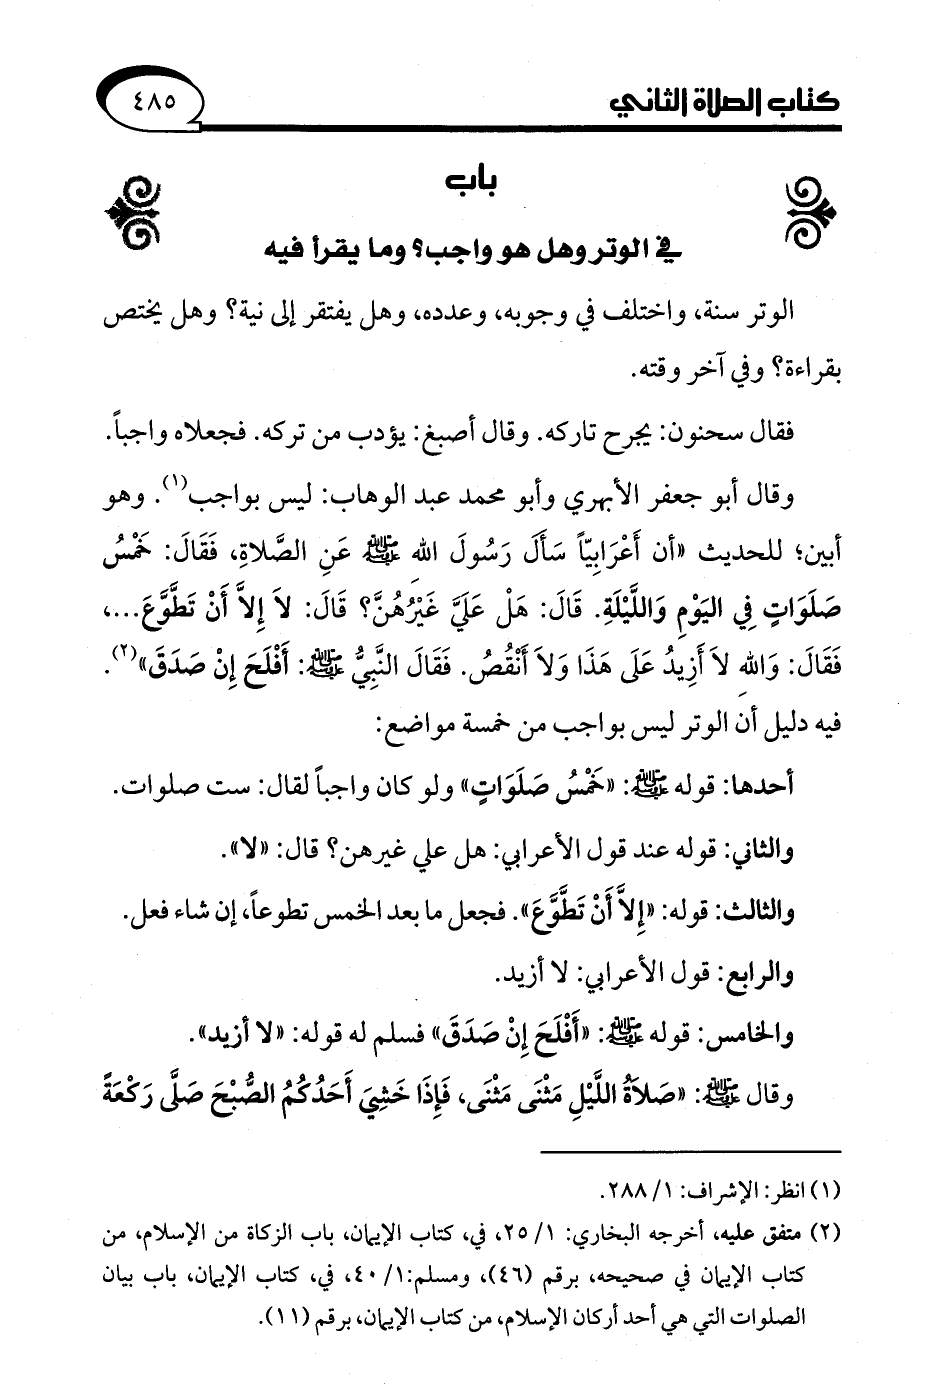 كتاب الصلاة الثاني
٤٨٥
باب
في الوتر وهل هو واجب؟ وما يقرأ فيه
الوتر سنة، واختلف في وجوبه، وعدده، وهل يفتقر إلى نية؟ وهل يختص
بقراءة؟ وفي آخر وقته.
فقال سحنون: يجرح تاركه. وقال أصبغ: يؤدب من تركه. فجعلاه واجباً.
وقال أبو جعفر الأبهري وأبو محمد عبد الوهاب: ليس بواجب(١). وهو
أبين؛ للحديث «أن أَعْرَابِيّاً سَأَلَ رَسُولَ اللهِ ﷺ عَنِ الصَّلاةِ، فَقَالَ: خَمْسُ
صَلَوَاتٍ فِي اليَوْمِ وَاللَّيْلَةِ. قَالَ: هَلْ عَلَيَّ غَيْرُهُنَّ؟ قَالَ: لاَ إِلاَّ أَنْ تَطَّوَّعَ...،
فَقَالَ: وَاللهِ لاَ أَزِيدُ عَلَى هَذَا وَلاَ أَنْقُصُ. فَقَالَ النَّبِيُّ ﷺ: أَفْلَحَ إِنْ صَدَقَ»(٢).
فيه دليل أن الوتر ليس بواجب من خمسة مواضع:
أحدها: قوله ﷺ: «خَمْسُ صَلَوَاتٍ» ولو كان واجباً لقال: ست صلوات.
والثاني: قوله عند قول الأعرابي: هل علي غيرهن؟ قال: «لا».
والثالث: قوله: «إِلاَّ أَنْ تَطَّوَّعَ». فجعل ما بعد الخمس تطوعاً، إن شاء فعل.
والرابع: قول الأعرابي: لا أزيد.
والخامس: قوله ﷺ: «أَفْلَحَ إِنْ صَدَقَ» فسلم له قوله: «لا أزيد».
وقال ﷺ: «صَلاَةُ اللَّيْلِ مَثْنَى مَثْنَى، فَإِذَا خَشِيَ أَحَدُكُمُ الصُّبْحَ صَلَّى رَكْعَةً
(١) انظر: الإشراف: ١/ ٢٨٨.
(٢) متفق عليه، أخرجه البخاري: ١/ ٢٥، في، كتاب الإيمان، باب الزكاة من الإسلام، من
كتاب الإيمان في صحيحه، برقم (٤٦)، ومسلم:١/ ٤٠، في، كتاب الإيمان، باب بيان
الصلوات التي هي أحد أركان الإسلام، من كتاب الإيمان، برقم (١١).